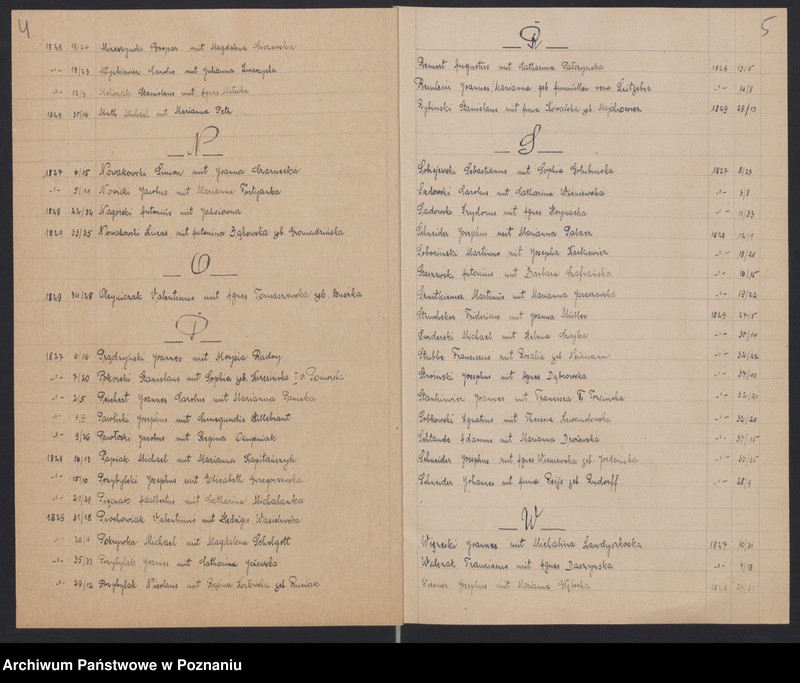 4
1828 19/24 Mizerszynski Caspar mit Magdalena
-"- 19/23 Carolus mit Julianna
-"- 12/2 Stanislaus mit Agnes
1829 35/16 Muth Michael mit Marianna Petz
N
1827 6/15 Novakowski Simon mit Joanna Czarnecka
-"- 5/11 Nowicki Jacobus mit Marianna Fortyanka
1828 22/32 Nagorski Antonius mit
1829 33/25 Nowakowski Lucas mit Antonina Dąbrowska geb. Gromadzińska
O
1829 34/28 Olejniczak Valentinus mit Agnes Tomaszewska geb. Buszka
P
1827 6/16 Prądzyński Joannes mit Aloysia Radoy
-"- 7/20 Pokorski Stanislaus mit Sophia geb.
-"- 2/5 Peichert Joannes Carolus mit Marianna
-"- 4/9 Pawlicki Josephus mit Cunegundis Hillebrant
-"- 9/26 Pawłoski Jacobus mit Regina
1828 16/13 Papiak Michael mit Marianna Kapitańczyk
-"- 15/10 Przybylski Josephus mit Elisabeth Grzegorzewska
-"- 21/29 Adalbertus mit Catharina Michalanka
1829 31/18 Piochowiak Valentinus mit Hedvigis
-"- 26/4 Pokrywka Michael mit Magdalena Schelgott
-"- 35/33 Przybylak Joannes mit Catharina
-"- 29/12 Przybylak Nicolaus mit Regina Kozłowska geb. Rusiak
5
R
Remert Augustus mit Catharina Pałczynska 1828 13/5
Joannes/Marianna geb verw. Leitgeber -"- 14/8
Rybinski Stanislaus mit Anna Kowalska geb. 1829 29/13
S
Sobiejewski Sebastianus mit Sophia Golubinska 1827 8/23
Sadowski Carolus mit Catharina Wisniewska -"- 3/8
Sadowski Izydorus mit Agnes -"- 11/33
Schneider Josephus mit Marianna Palacz 1828 12/1
Sobocinski Martinus mit Josepha Karkiewicz -"- 18/20
Staszewski Antonius mit Barbara Szafrańska -"- 16/15
Szmitkiewicz Martinus mit Marianna Jaraczewska -"- 19/22
Fridericus mit Joanna Müller 1829 27/5
Swiderski Michael mit Helena Szajka -"- 30/14
Stubbe Franciscus mit Rosalia geb Neumann -"- 32/22
Stroinski Josephus mit Agnes Dąbrowska -"- 34/30
Stankiewicz Joannes mit Francisca -"- 32/21
Sobkowski Ignatius mit Theresia Lewandowska -"- 32/20
Adamus mit Marianna Drożewska -"- 30/15
Schneider Josephus mit Agnes Wisniewska geb. Jordenska -"- 35/35
Schneider Johannes mit Anna geb Rudorff -"- 28/9
W
Joannes mit Michalina Landyszkoska 1827 10/31
Walczak Franciscus mit Agnes Daszynska -"- 7/18
Wiesner Josephus mit Marianna 1828 20/27
Archiwum Państwowe w Poznaniu